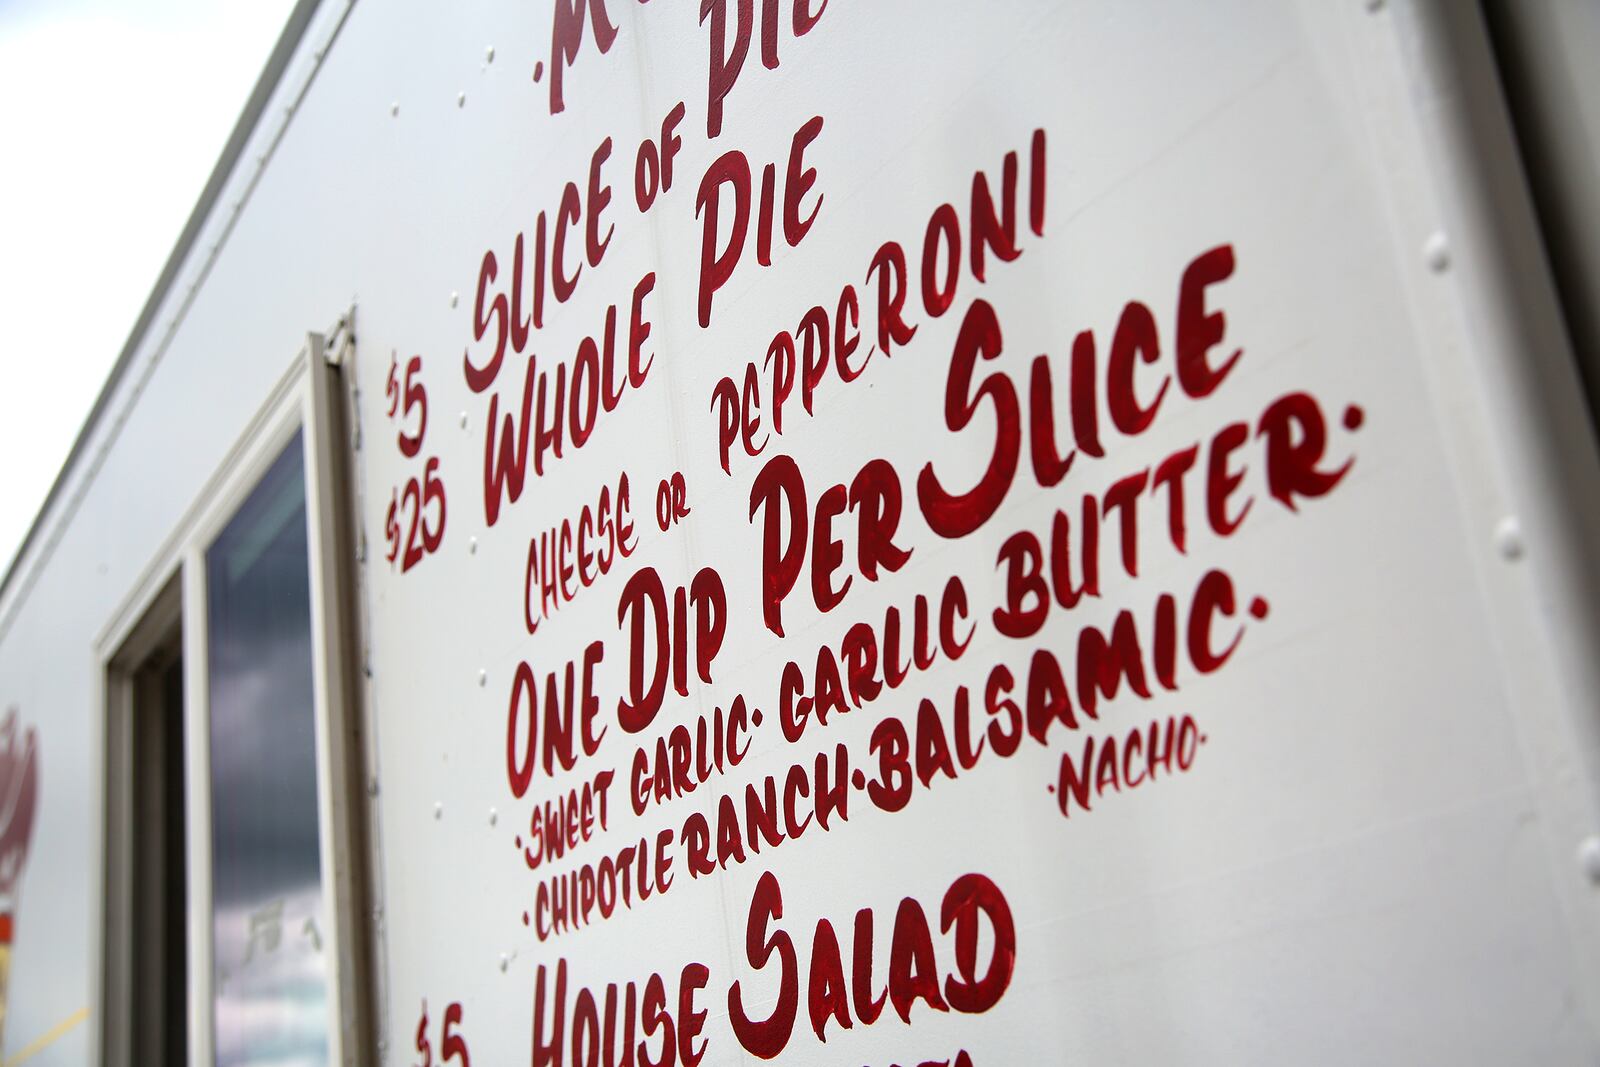 $5 SLICE OF PIE
$25 WHOLE PIE
CHEESE OR PEPPERONI
ONE DIP PER SLICE
·SWEET GARLIC· GARLIC BUTTER·
·CHIPOTLE RANCH·BALSAMIC·
·NACHO·
$5 HOUSE SALAD